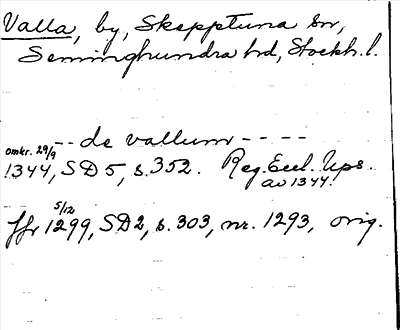 Valla, by, Skepptuna sn,
Seminghundra hd, Stockh. l.
-- de vallum -----
omkr. 29/9
1344, SD 5, s. 352. Reg. Eccl. Ups.
av 1344.
5/12
ffr 1299, SD 2, s. 303, nr. 1293, orig.